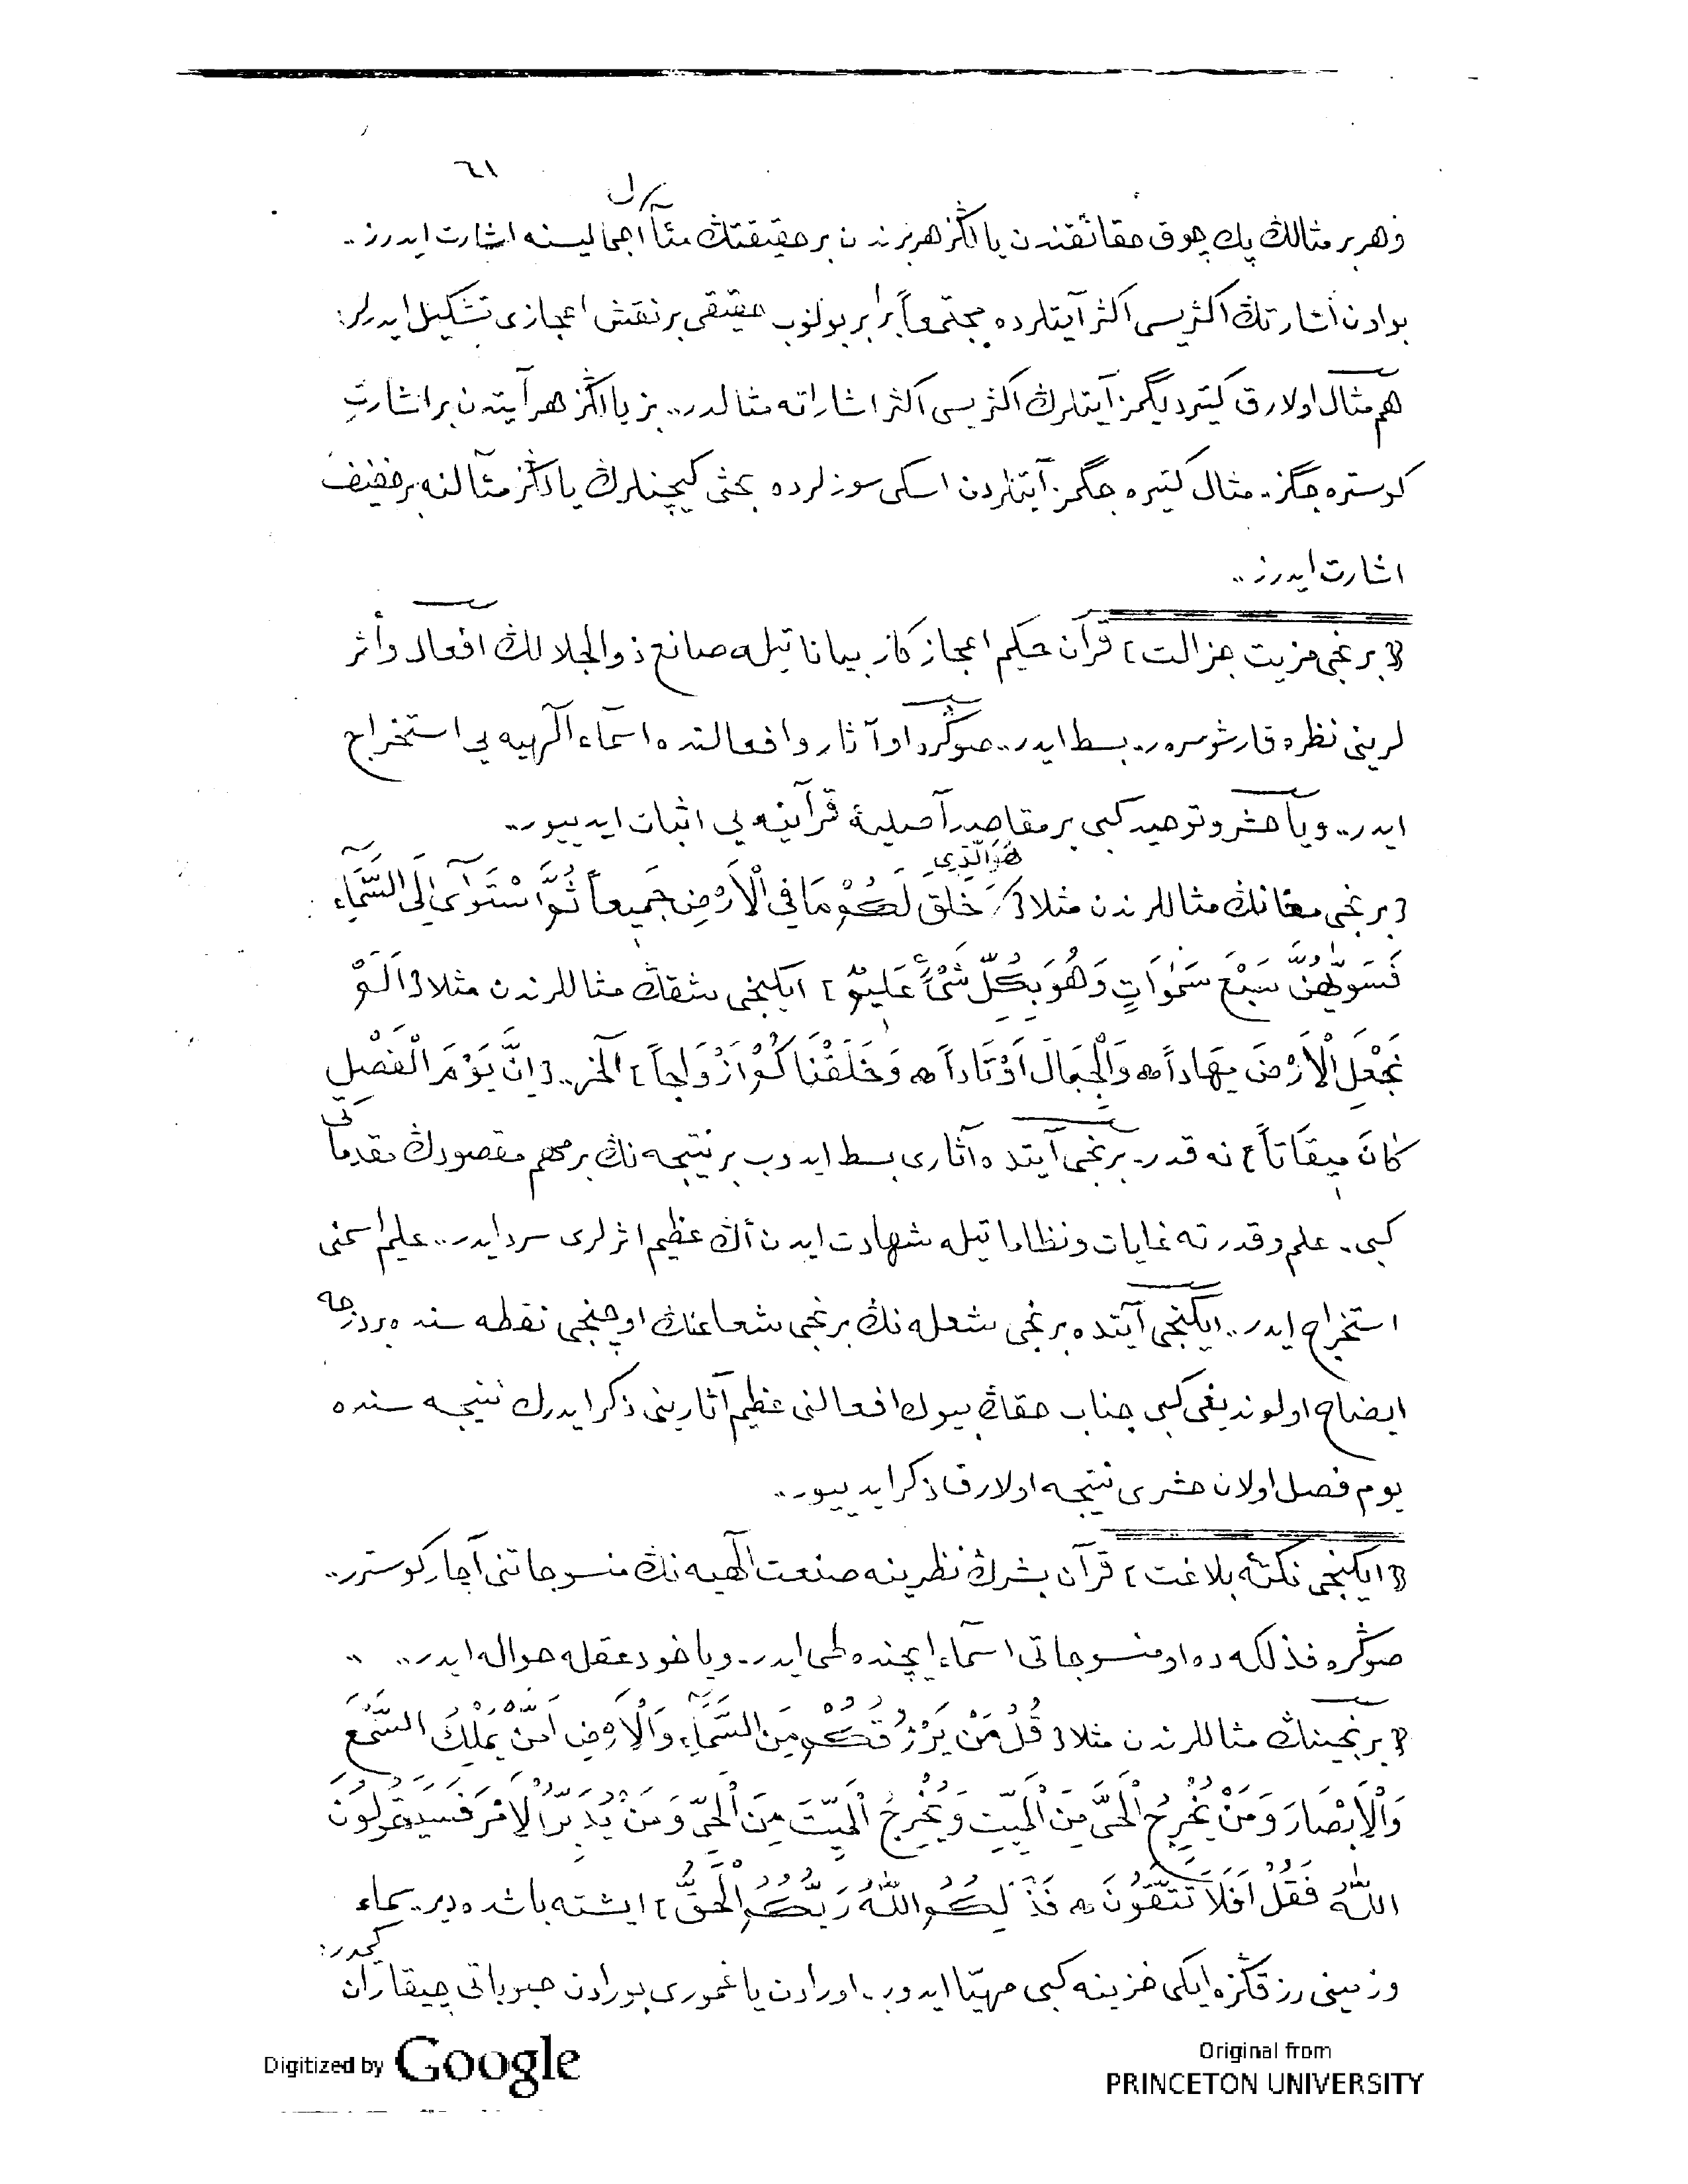 ٦١
وهر بر مثالك پك چوق حقائقندن يالڭز هر برندن بر حقيقتڭ مثال اجماليسنه اشارت ايدرز..
بو اون اشارتڭ اكثريسى اكثر آيتلرده مجتمعاً برابر بولنوب حقيقى بر نقش اعجازى تشكيل ايدرلر:
هم مثال اولارق كتيرديگمز آيتلرڭ اكثريسى اكثر اشاراته مثالدر.. بز يالڭز هر آيتدن بر اشارت
كوستره جگز. مثال كتيره جگمز آيتلردن اسكى سوزلرده بحثى كچنلرڭ يالڭز مئالنه بر خفيف
اشارت ايدرز..
﴿برنجى مزيت جزالت﴾ قرآن حكيم اعجازكار بياناتيله صانع ذوالجلالڭ افعال وأثر
لرينى نظره قارشو سرر.. بسط ايدر.. صوڭره او آثار وافعالنده اسمآء الٓهيه يى استخراج
ايدر.. ويا حشر وتوحيد كبى بر مقاصد اصليۀ قرآنيه يى اثبات ايدييور..
برنجى معنانڭ مثاللرندن مثلا ﴿هُوَ الَّذِي خَلَقَ لَكُمْ مَا فِي الْاَرْضِ جَمِيعاً ثُمَّ اسْتَوٰٓى اِلَى السَّمَٓاءِ
فَسَوّٰيهُنَّ سَبْعَ سَمٰوَاتٍ وَهُوَ بِكُلِّ شَيْءٍ عَلِيمٌ﴾ ايكنجى شقڭ مثاللرندن مثلا ﴿اَلَمْ
نَجْعَلِ الْاَرْضَ مِهَاداً ۞ وَالْجِبَالَ اَوْتَاداً ۞ وَخَلَقْنَاكُمْ اَزْوَاجاً﴾ الخ.. ﴿اِنَّ يَوْمَ الْفَصْلِ
كَانَ مِيقَاتاً﴾ نه قدر. برنجى آيتده آثارى بسط ايدوب بر نتيجه نڭ بر مهم مقصودڭ مقدماتى
كبى. علم وقدرته غايات ونظاماتيله شهادت ايدن أڭ عظيم اثرلرى سرد ايدر.. عليم اسمنى
استخراج ايدر.. ايكنجى آيتده برنجى شعله نڭ برنجى شعاعنڭ اوچنجى نقطه سنده بر درجه
ايضاح اولونديغى كبى جناب حقڭ بيوك افعالنى عظيم آثارينى ذكر ايدرك نتيجه سنده
يوم فصل اولان حشرى نتيجه اولارق ذكر ايدييور..
﴿ايكنجى نكتۀ بلاغت﴾ قرآن بشرڭ نظرينه صنعت الٓهيه نڭ منسوجاتنى آچار كوسترر..
صوڭره فذلكه ده او منسوجاتى اسمآء ايچنده طى ايدر. وياخود عقله حواله ايدر..
برنجينڭ مثاللرندن مثلا ﴿قُلْ مَنْ يَرْزُقُكُمْ مِنَ السَّمَٓاءِ وَالْاَرْضِ اَمَّنْ يَمْلِكُ السَّمْعَ
وَالْاَبْصَارَ وَمَنْ يُخْرِجُ الْحَيَّ مِنَ الْمَيِّتِ وَيُخْرِجُ الْمَيِّتَ مِنَ الْحَيِّ وَمَنْ يُدَبِّرُ الْاَمْرَ فَسَيَقُولُونَ
اللّٰهُ فَقُلْ اَفَلَا تَتَّقُونَ ۞ فَذٰلِكُمُ اللّٰهُ رَبُّكُمُ الْحَقُّ﴾ ايشته باشده دير. سماء
وزمينى رزقڭزه ايكى خزينه كبى مهيّا ايدوب. اورادن ياغمورى بورادن حبوباتى چيقاران كيمدر:
Digitized by Google
Original from
PRINCETON UNIVERSITY